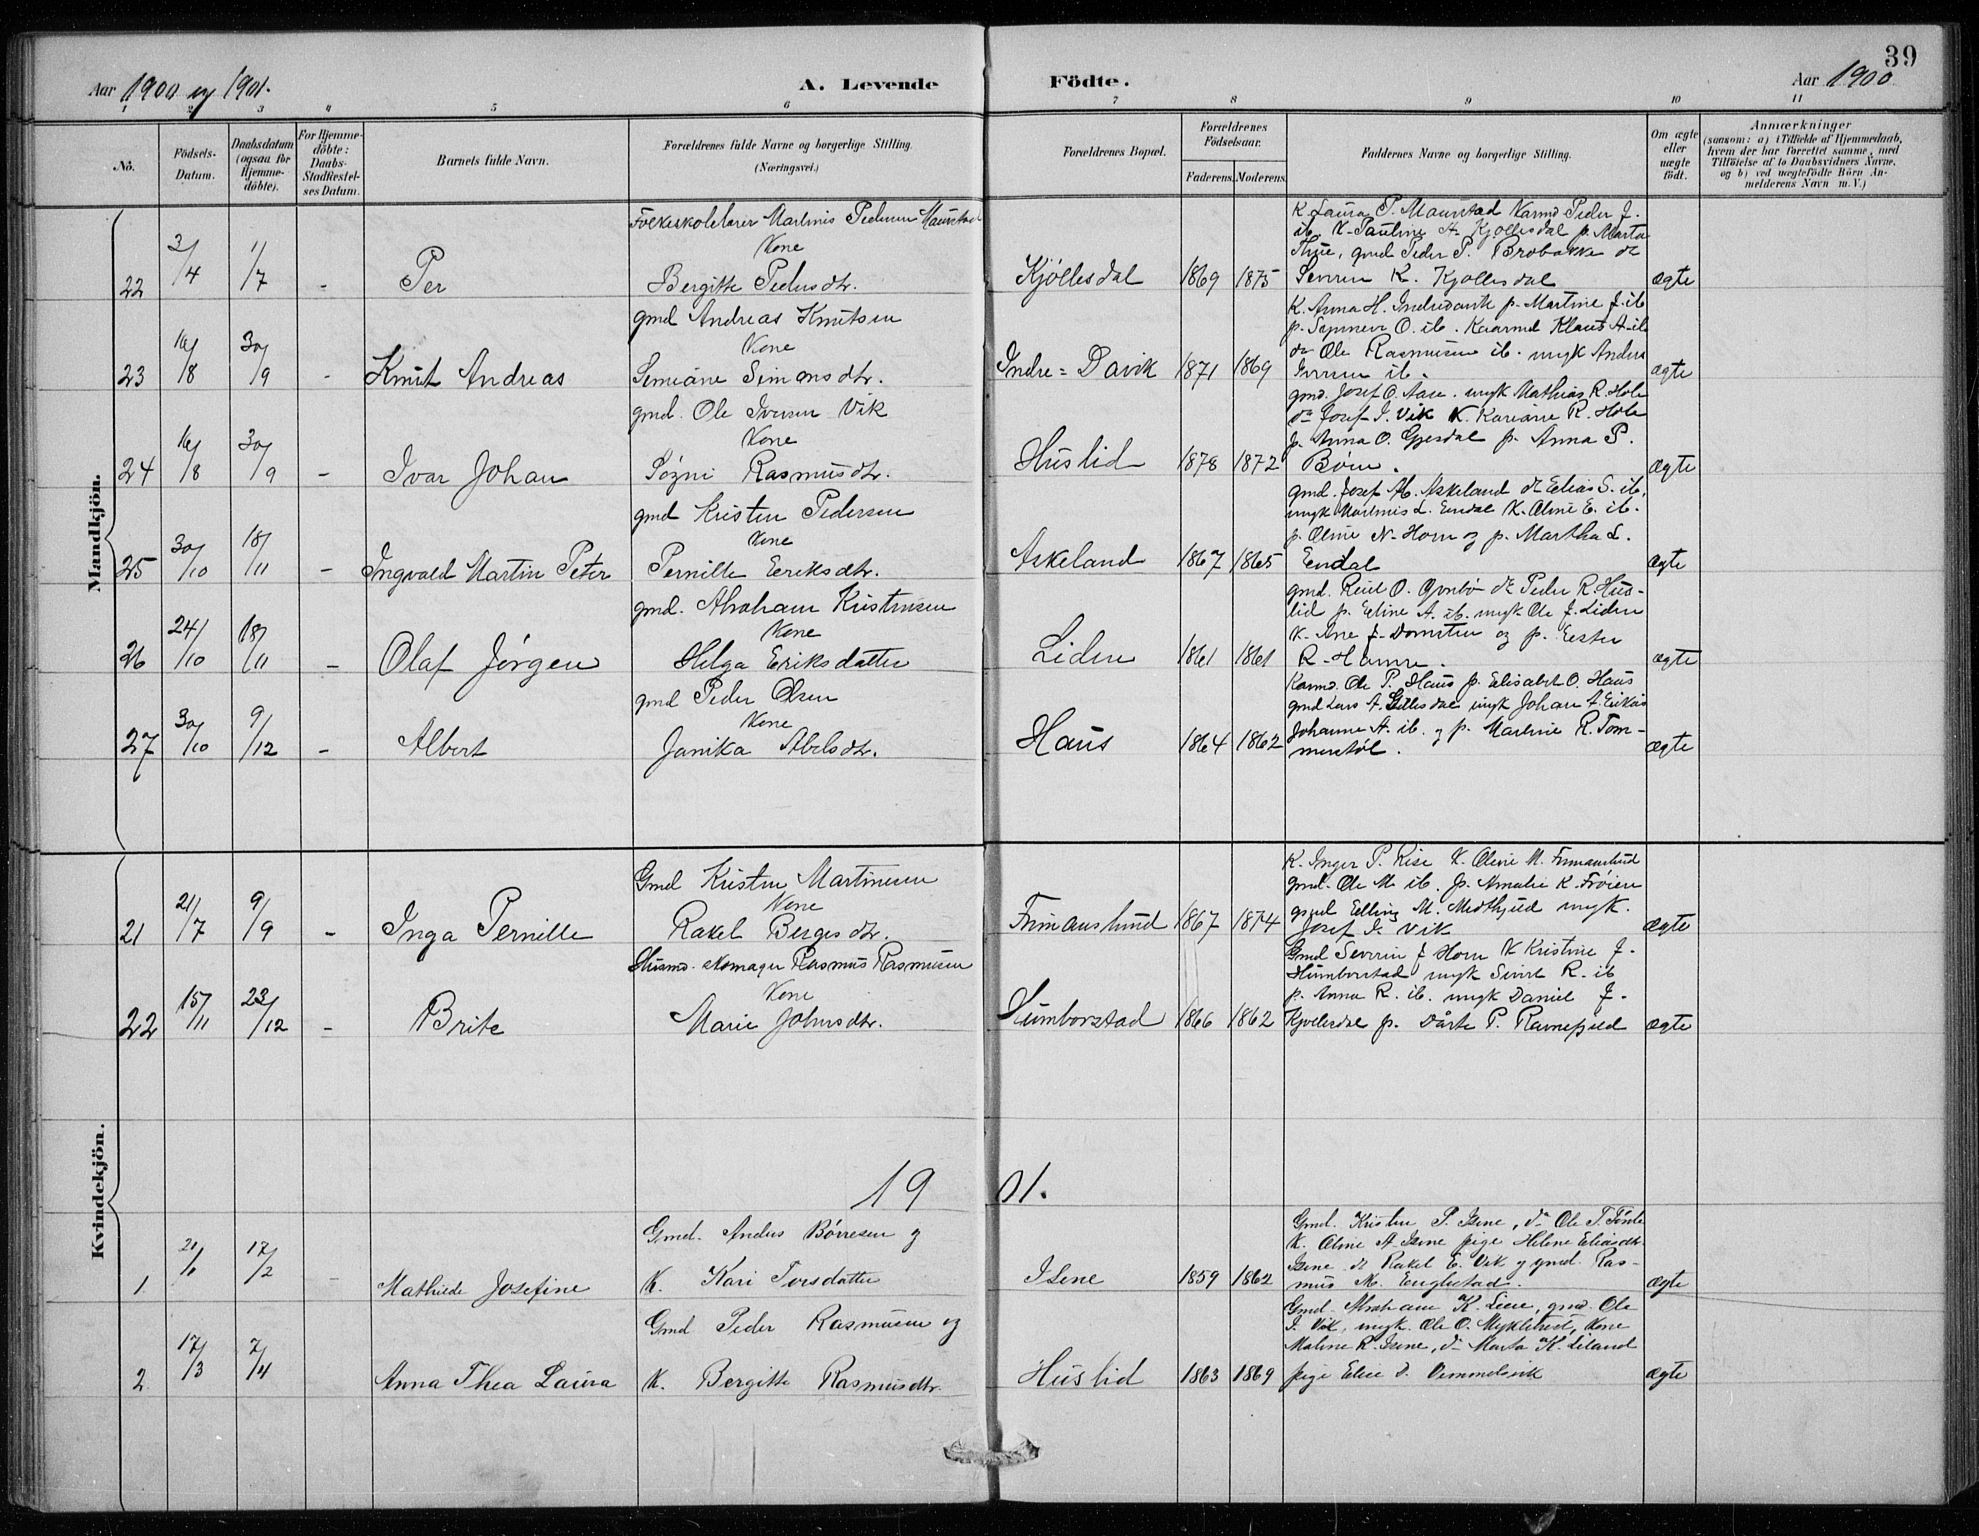 39
Aar 1900 og 1901.
A. Levende Födte.
Aar 1900
1 2 3 4 5 6 7 8 9 10 11
No.
Födsels-Datum.
Daabsdatum (ogsaa for Hjemme-döbte).
For Hjemme-döbte: Daabs-Stadfæstel-ses Datum.
Barnets fulde Navn.
Forældrenes fulde Navne og borgerlige Stilling. (Næringsvei.)
Forældrenes Bopæl.
Forældrenes Födselsaar.
Faderens. Moderens.
Faddernes Navne og borgerlige Stilling.
Om ægte eller uægte födt.
Anmærkninger
(saasom: a) i Tilfælde af Hjemmedaab,
hvem der har forrettet samme, med
Tilföielse af to Daabsvidners Navne,
og b) ved uægtefödte Börn An-
melderens Navn m. V.)
Mandkjön.
Folkeskolelærer Martinis Pedersen Maurstad
Kone
22 3/4 1/7 - Per Bergitte Pedersdtr. Kjøllesdal 1869 1875 ægte
K. Laura P. Maurstad Karmd Peder J.
ib. K. Pauline A. Kjøllesdal p. Marta
Thue, gmd Peder P. Brobakke do
Severin K. Kjøllesdal
gmd Andreas Knutsen
Kone
23 16/8 30/9 - Knut Andreas Simiane Simonsdtr. Indre=Davik 1871 1869 ægte
K. Anna H. Indredavik p. Martine J. ib
p. Synneve O. ib. Kaarmd Klaus A. ib
do Ole Rasmusen ib. ungk Anders
Iversen ib.
gmd. Ole Iversen Vik
Kone
24 16/8 30/9 - Ivar Johan Søgni Rasmusdtr. Huslid 1878 1872 ægte
gmd. Josef O. Aase. ungk Mathias R. Hole
do Josef I. Vik K. Kariane R. Hole
p. Anna O. Gjesdal p. Anna P.
Børn.
gmd Kristen Pedersen
Kone
25 30/10 18/11 - Ingvald Martin Peter Pernille Eriksdtr. Askeland 1867 1865 ægte
gmd. Josef M. Askeland do Elias S. ib.
ungk Martinis L. Endal K. Oline E. ib.
p. Oline N. Horn og p. Martha L.
Endal
gmd. Abraham Kristensen
Kone
26 24/10 18/11 - Olaf Jørgen Helga Eriksdatter Liden 1861 1861 ægte
gmd. Reiel O. do Peder R. Hus-
lid p. Eline A. ib. ungk Ole J. Liden
K. Ane J. Domsten og p. Ester
R. Hamre.
gmd Peder Olsen
Kone
27 30/10 9/12 - Albert Janika Abelsdtr. Haus 1864 1862 ægte
Karmd. Ole P. Haus p. Elisabet O. Haus
gmd Lars A. Gillesdal ungk Johan A.
Johanne A. ib. og p. Martine R. Tom-
merstøl.
Kvindekjön.
Gmd Kristen Martinesen
Kone
21 21/7 9/9 - Inga Pernille Rakel Bergesdtr. Frimanslund 1867 1874 ægte
K. Inger P. Rise K. Oline M. Frimanslund
gmd. Ole M. ib. p. Amalie K. Frøien
gmd Elling M. Medhjeld ungk.
Josef I. Vik
Husmd. skomager Rasmus Rasmusen
Kone
22 15/11 23/12 - Brite Marie Johnsdtr. Humborstad 1866 1862 ægte
Gmd Severin J Horn K Kristine J.
Humborstad ungk Sivert R. ib
p. Anna R. ib. ungk Daniel J.
Kjøllesdal p. Dårte P. Ravnefjeld
1901.
Gmd. Anders Børresen og
1 17/2 - Mathilde Josefine K. Kari Torsdatter Isene 1859 1862 ægte
Gmd. Kristen P. Isene, do Ole T.
K. Oline A. Isene pige Helene Eliasdtr
Isene do Rakel E. Vik og gmd. Ras-
mus M. Englestad.
Gmd Peder Rasmusen og
2 17/3 7/4 Anna Thea Laura K. Bergitte Rasmusdtr. Huslid 1863 1869 ægte
Gmd. Abraham K. Lien, gmd. Ole
I. Vik, ungk. Ole O. Myklebust, Kone
Maline R. Isene, do Marta K. Liland
pige Elise D. Vemmelsvik